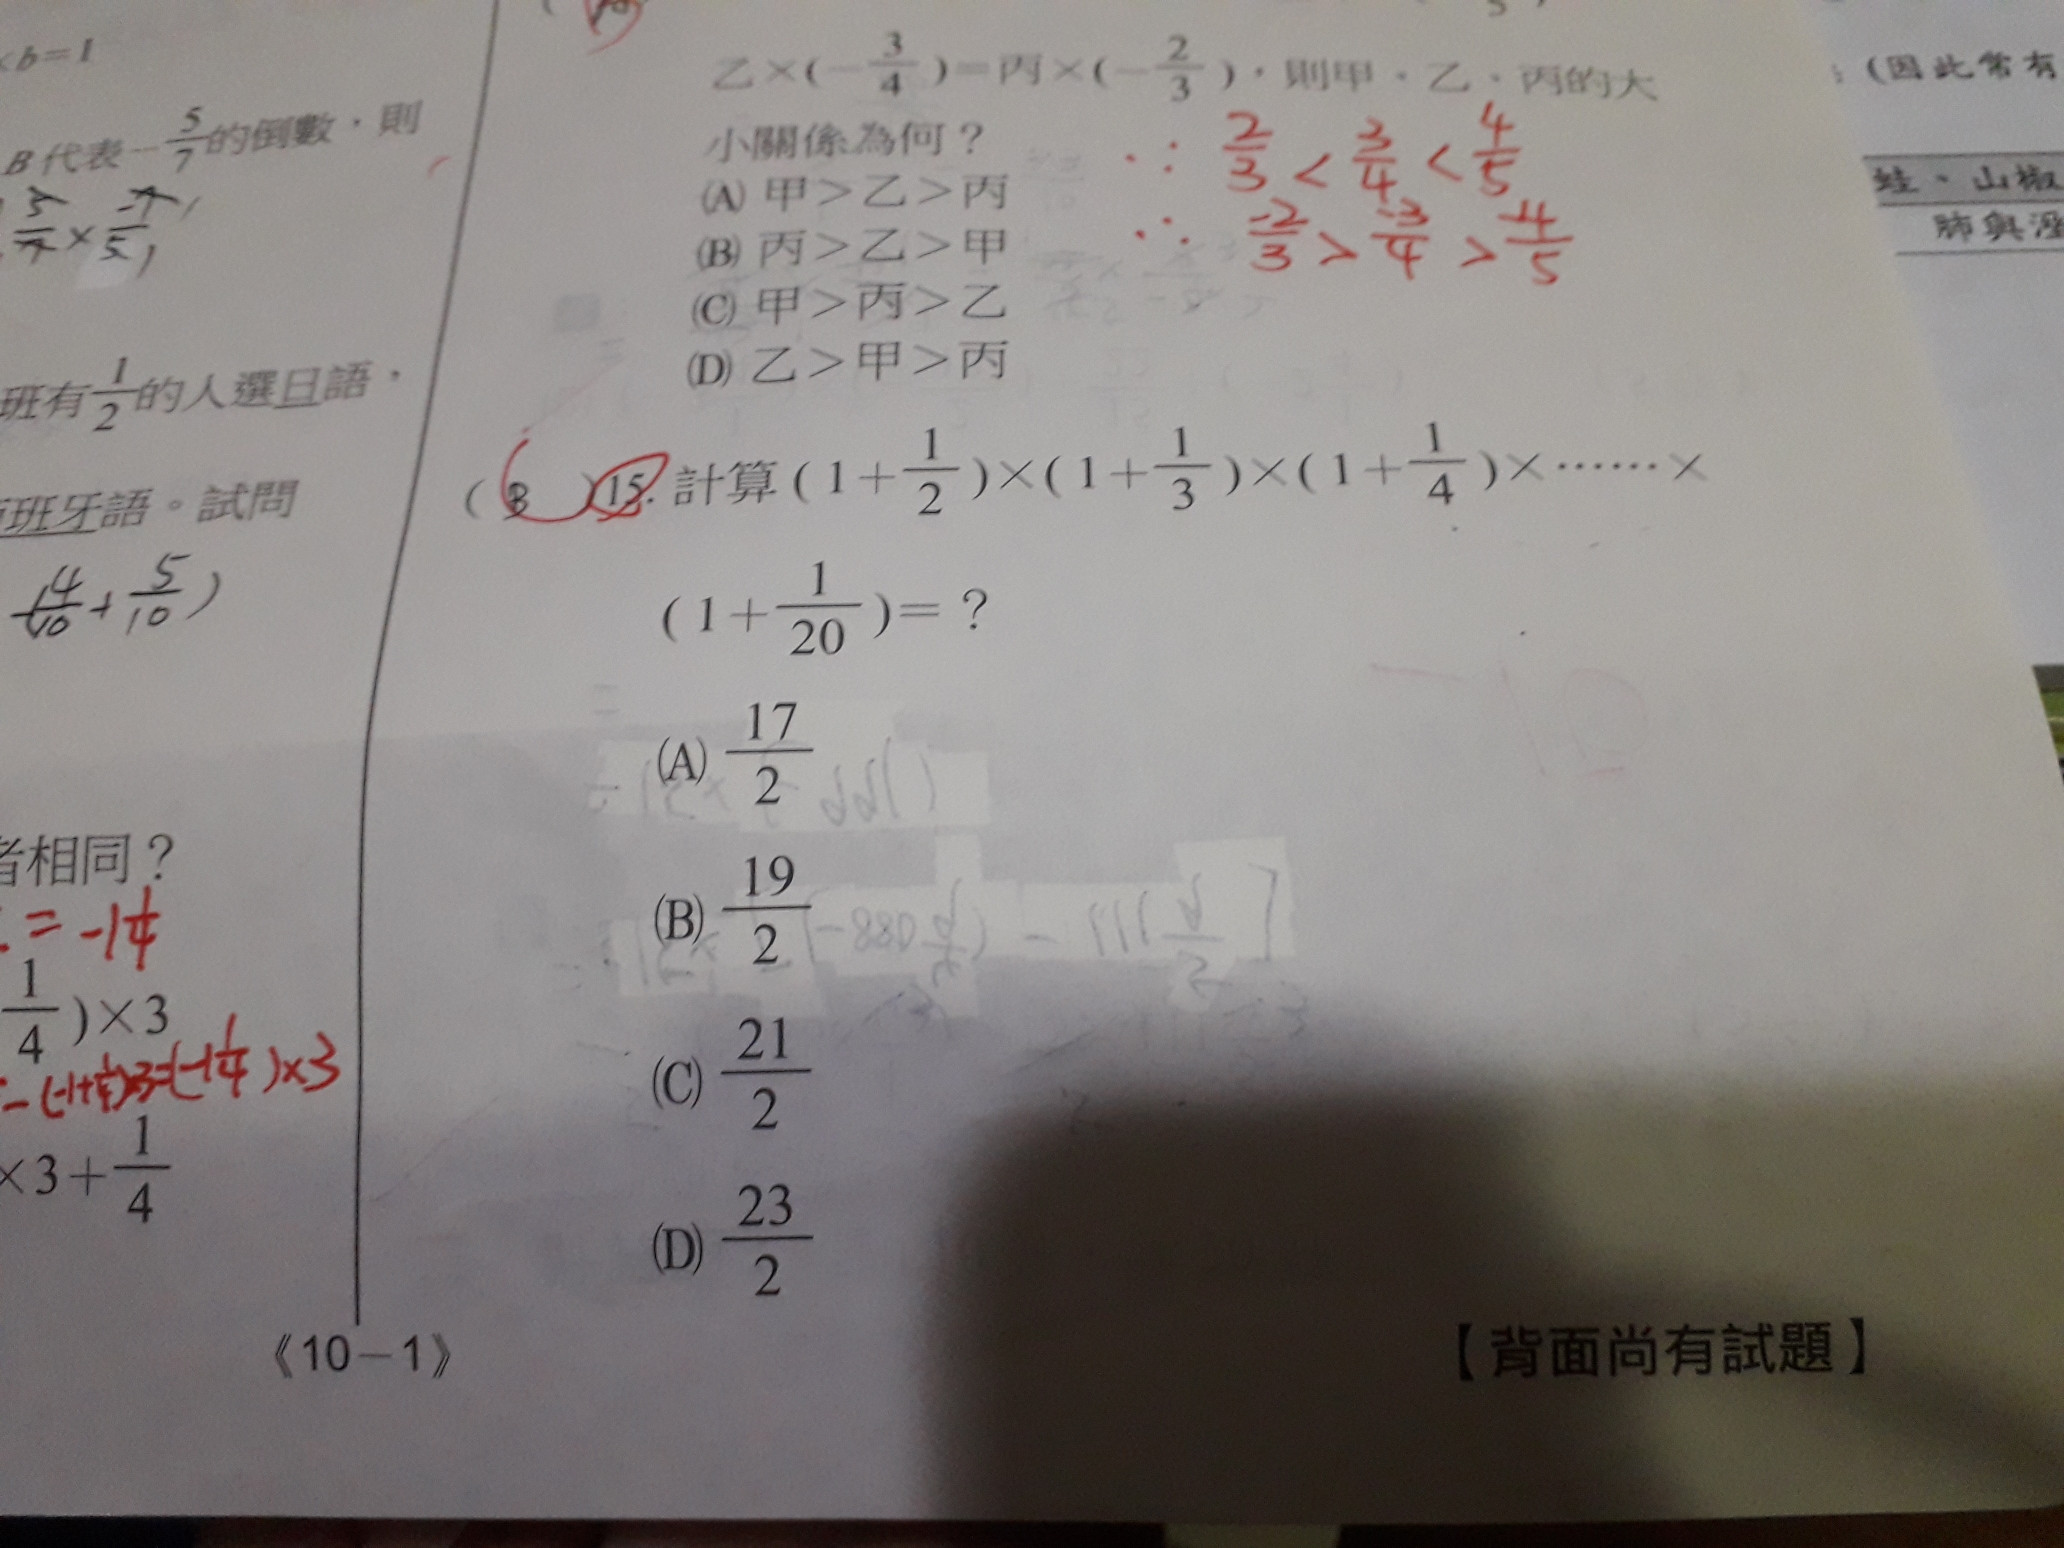 ×b=1
B代表-5/7的倒數，則
班有1/2的人選日語，
班牙語。試問
4/10+5/10)
者相同？
=-1 1/4
1/4)×3
(-1 1/4)×3
×3+1/4
《10－1》
乙×(-3/4)=丙×(-2/3)，則甲、乙、丙的大
小關係為何？
∵ 2/3 < 3/4 < 4/5
∴ -2/3 > -3/4 > -4/5
(A) 甲＞乙＞丙
(B) 丙＞乙＞甲
(C) 甲＞丙＞乙
(D) 乙＞甲＞丙
( B )15. 計算(1+1/2)×(1+1/3)×(1+1/4)×……×
(1+1/20)=？
(A) 17/2
(B) 19/2
(C) 21/2
(D) 23/2
【背面尚有試題】
(因此常有
蛙、山椒
肺與溼